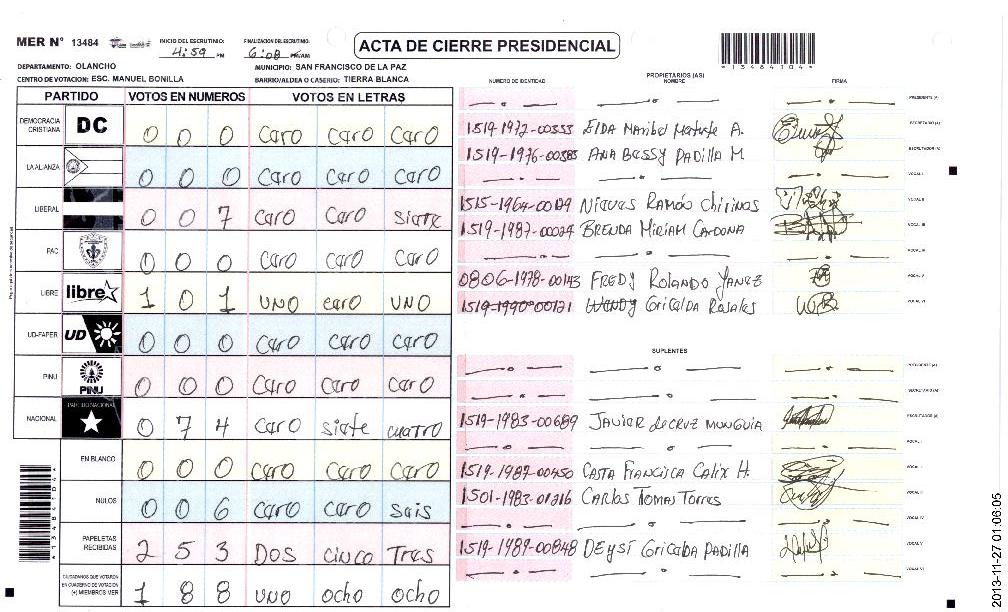 MER N° 13484
INICIO DEL ESCRUTINIO: 4:59 PM
FINALIZACION DEL ESCRUTINIO: 6:08 PM/AM
ACTA DE CIERRE PRESIDENCIAL
*13484104*
DEPARTAMENTO: OLANCHO
MUNICIPIO: SAN FRANCISCO DE LA PAZ
CENTRO DE VOTACION: ESC. MANUEL BONILLA
BARRIO/ALDEA O CASERIO: TIERRA BLANCA
PARTIDO VOTOS EN NUMEROS VOTOS EN LETRAS
DEMOCRACIA CRISTIANA DC 0 0 0 caro caro caro
LA ALIANZA 0 0 0 caro caro caro
LIBERAL 0 0 7 caro caro siate
PAC 0 0 0 caro caro caro
LIBRE libre 1 0 1 UNO caro UNO
UD-FAPER UD 0 0 0 caro caro caro
PINU PINU 0 0 0 caro caro caro
NACIONAL PARTIDO NACIONAL 0 7 4 caro siate cuatro
EN BLANCO 0 0 0 caro caro caro
NULOS 0 0 6 caro caro sais
PAPELETAS RECIBIDAS 2 5 3 DOS cinco Tres
CIUDADANOS QUE VOTARON EN CUADERNO DE VOTACION (+) MIEMBROS MER 1 8 8 UNO ocho ocho
PROPIETARIOS (AS)
NUMERO DE IDENTIDAD NOMBRE FIRMA
PRESIDENTE (A)
1519-1972-00333 EIDA Maribel Matute A. SECRETARIO (A)
1519-1976-00383 ANA BESSY PADILLA M ESCRUTADOR (A)
VOCAL I
1515-1964-00119 Nieves RAMÓN Chirinos VOCAL II
1519-1987-00024 BRENDA MIRIAM CARDONA VOCAL III
VOCAL IV
0806-1978-00143 FREDY ROLANDO YANEZ VOCAL V
1519-1990-00121 WENDY Gricalda Rosales VOCAL VI
SUPLENTES
PRESIDENTE (A)
SECRETARIO (A)
1519-1983-00689 JAVIER de CRUZ MUNGUIA ESCRUTADOR (A)
VOCAL I
1519-1987-00450 CASTA FRANCISCA CALIX H. VOCAL II
1501-1983-01216 CARLOS TOMAS TORRES VOCAL III
VOCAL IV
1519-1989-00848 DEYSI Gricalda PADILLA VOCAL V
VOCAL VI
*13484104*
2013-11-27 01:06:05